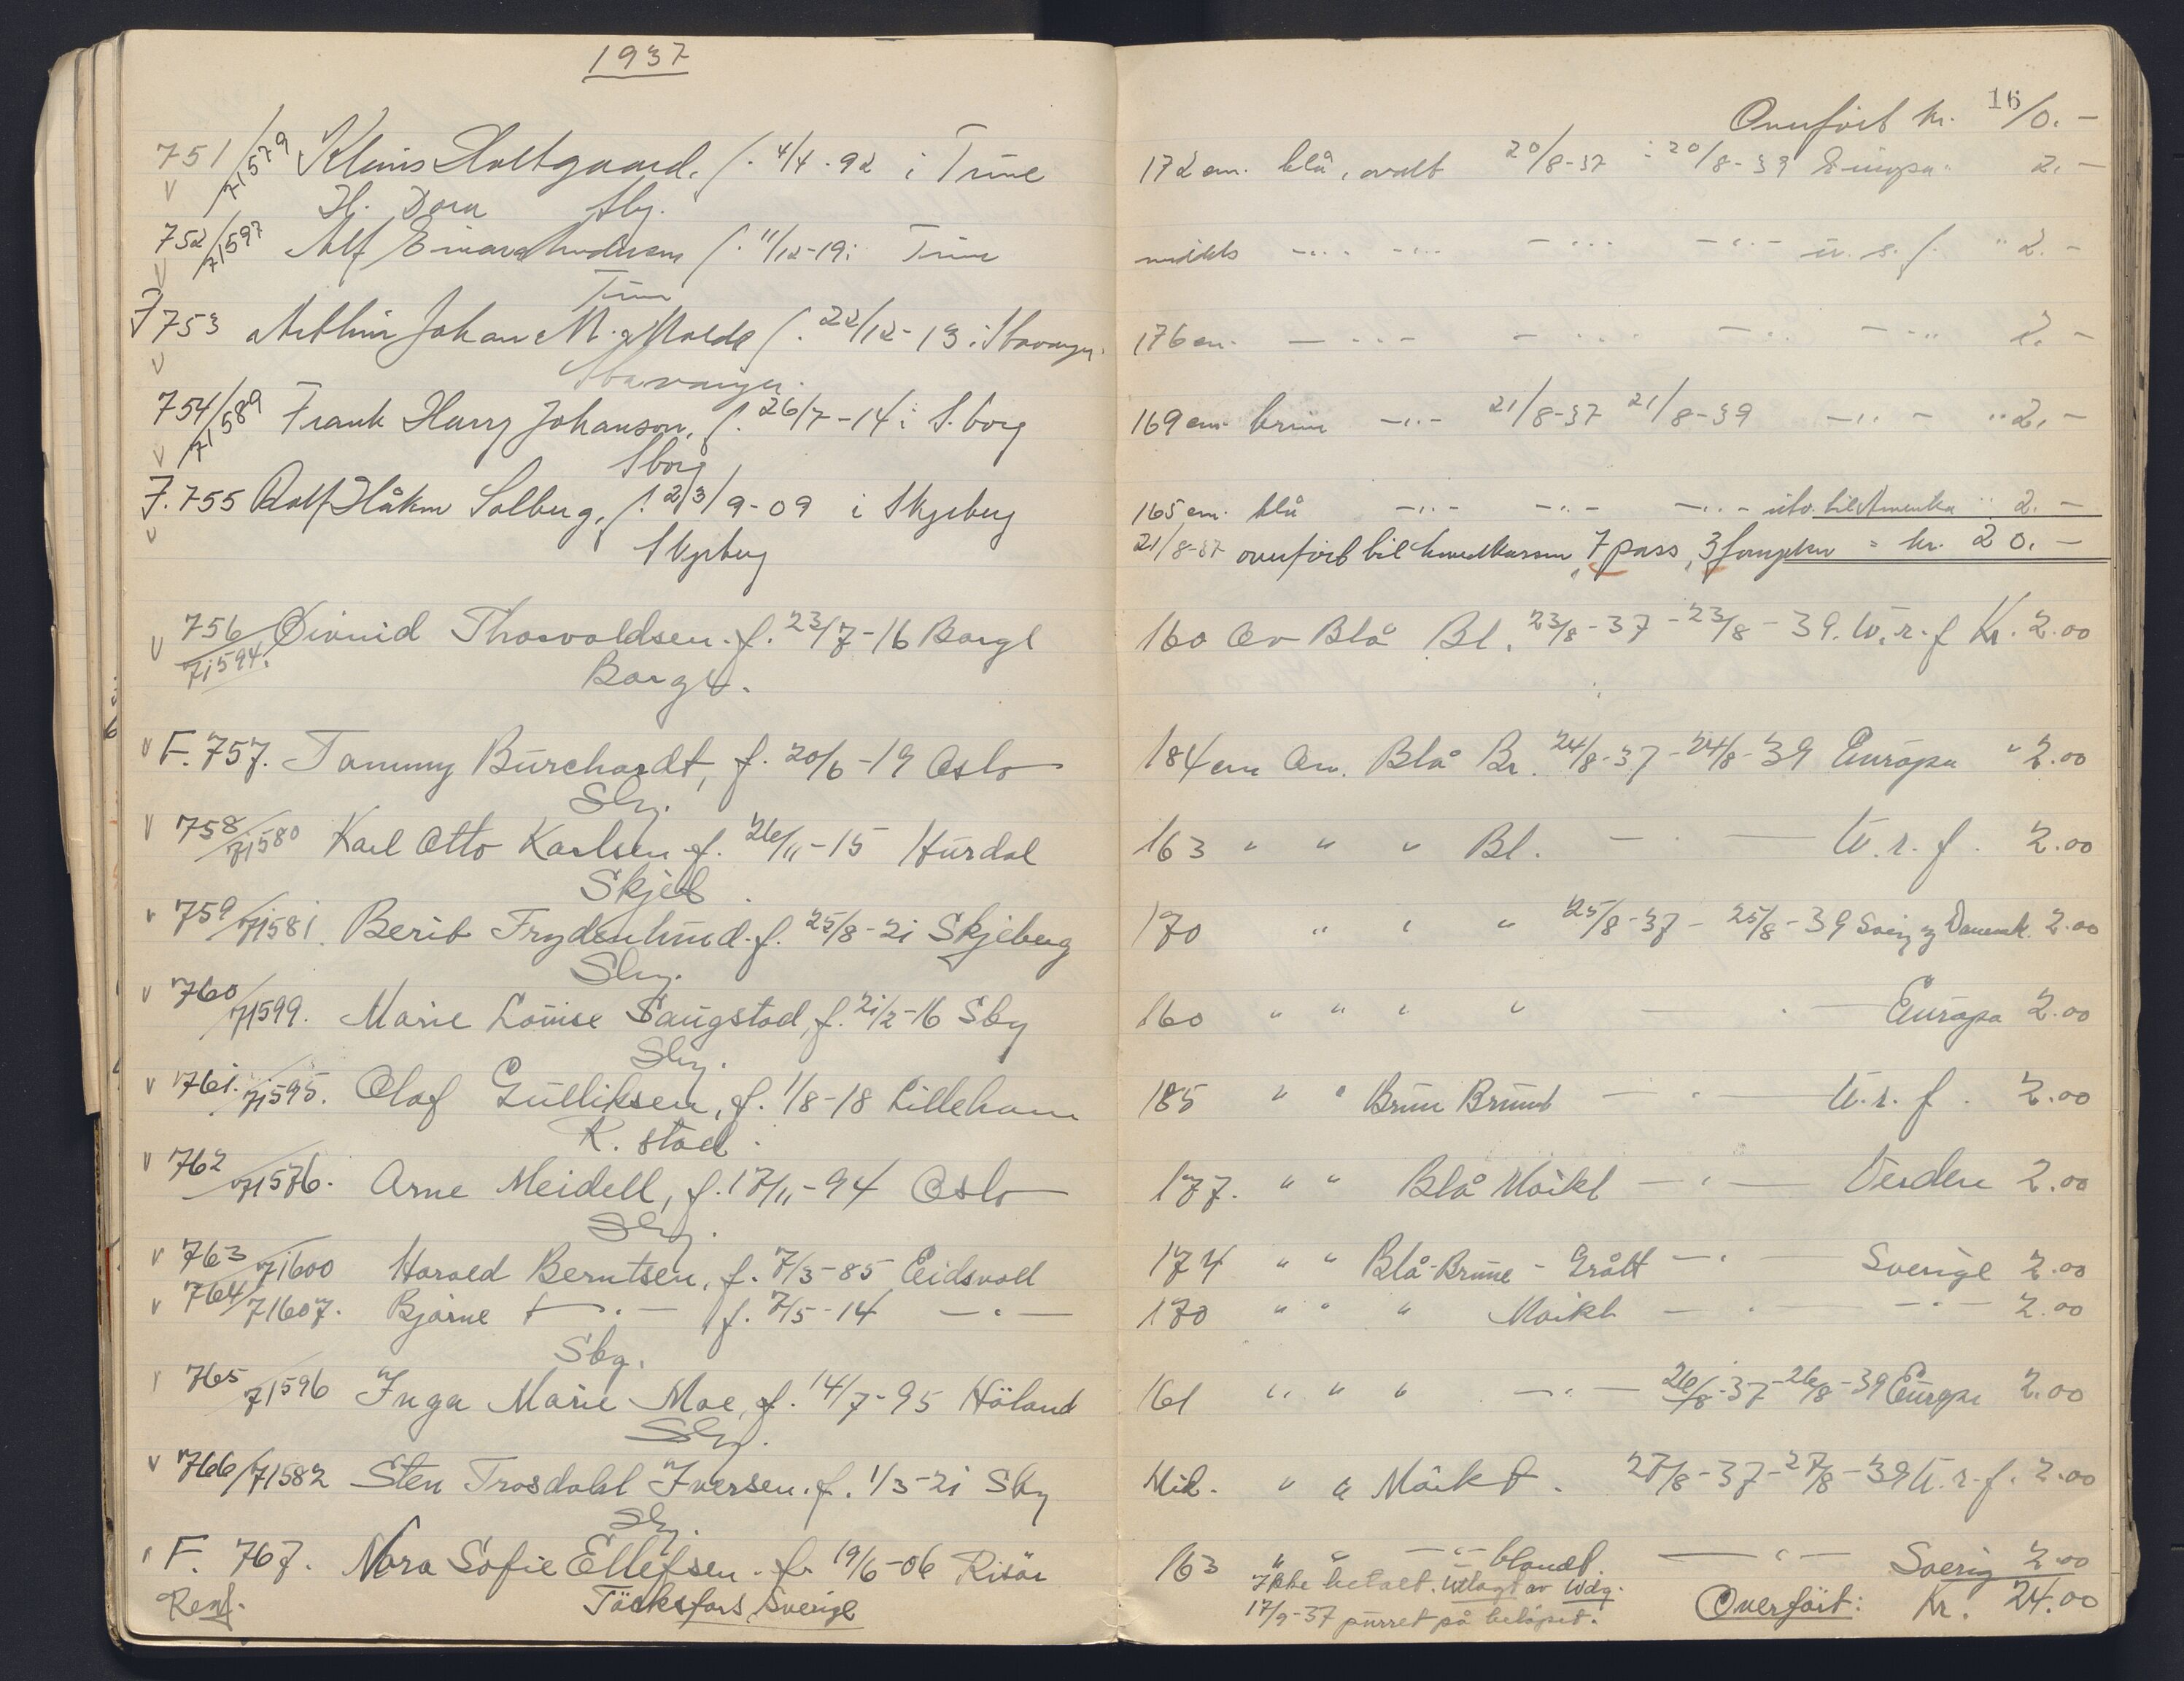 1937
751/71579 Klaus Holtgaard, f. 4/4-92 i Tune
H. Dora Sbg.
752/71597 Alf Einar Knudsen f. 11/12-19 i Tune
Tune
F 753 Arthur Johan M. g. Molde f. 22/12-13 i Stavanger.
Stavanger.
754/71589 Frank Harry Johanson, f. 26/7-14 i S.borg
Sborg
F. 755 Rolf Håkon Solberg, f. 23/9-09 i Skjeberg
Skjeberg
756/71594. Øivind Thorvaldsen. f. 23/7-16 Borge
Borge.
F. 757. Tommy Burchardt, f. 20/6-19 Oslo
Sbg.
758/71580 Karl Otto Karlsen f. 26/11-15 Hurdal
Skjeb.
759/71581. Berit Frydenlund. f. 25/8-21 Skjeberg
Sbg.
760/71599. Marie Louise Saugstad, f. 21/2-16 Sbg
Sbg.
761./71595. Olaf Gulliksen, f. 1/8-18 Lilleham
K. stad.
762/71576. Arne Meidell, f. 17/11-94 Oslo
Sbg.
763/71600 Harald Berntsen, f. 7/3-85 Eidsvoll
764/71607. Bjarne —"— f. 7/5-14 —"—
Sbg.
765/71596 Inga Marie Moe, f. 14/7-95 Höland
Sbg.
766/71582 Sten Trosdahl Iversen. f. 1/3-21 Sbg
Sbg.
F. 767. Nora Sofie Ellefsen. f. 19/6-06 Risör
Ref. Töcksfors, Sverige
16
Overført kr. 10.-
172 cm. blå, ovalt 20/8-37 - 20/8-39 Europa. 2.-
middels —"— —"— —"— —"— u. r. f. " 2.-
176 cm. —"— —"— —"— —"— 2.-
169 cm. brun —"— 21/8-37 21/8-39 —"— " 2.-
165 cm. blå —"— —"— —"— utv. til Amerika " 2.-
21/8-37 overført til hovedkassen, 7 pass, 3 fornyelser = kr. 20.-
160 Ov Blå Bl. 23/8-37-23/8-39. U.r.f Kr. 2.00
184 cm Ov. Blå Br. 24/8-37-24/8-39 Europa " 2.00
163 " " " Bl. —"— U.r.f. 2.00
170 " " " 25/8-37-25/8-39 Sverig og Danmark. 2.00
160 " " " " —"— Europa 2.00
185 " " Brun Brunt —"— U.r.f. 2.00
177. " " Blå Mörkt —"— Verden 2.00
174 " " Blå-Brune-Grått —"— Sverige 2.00
170 " " " Mörkt —"— —"— 2.00
161 " " " —"— 26/8-37-26/8-39 Europa 2.00
Mid. " " Mörkt. 27/8-37-27/8-39 U.r.f. 2.00
163 " " —"— blondt. —"— Sverig 2.00
Ikke betalt. Utlagt av Wdg.
17/9-37 purret på beløpet.
Overfört: Kr. 24.00